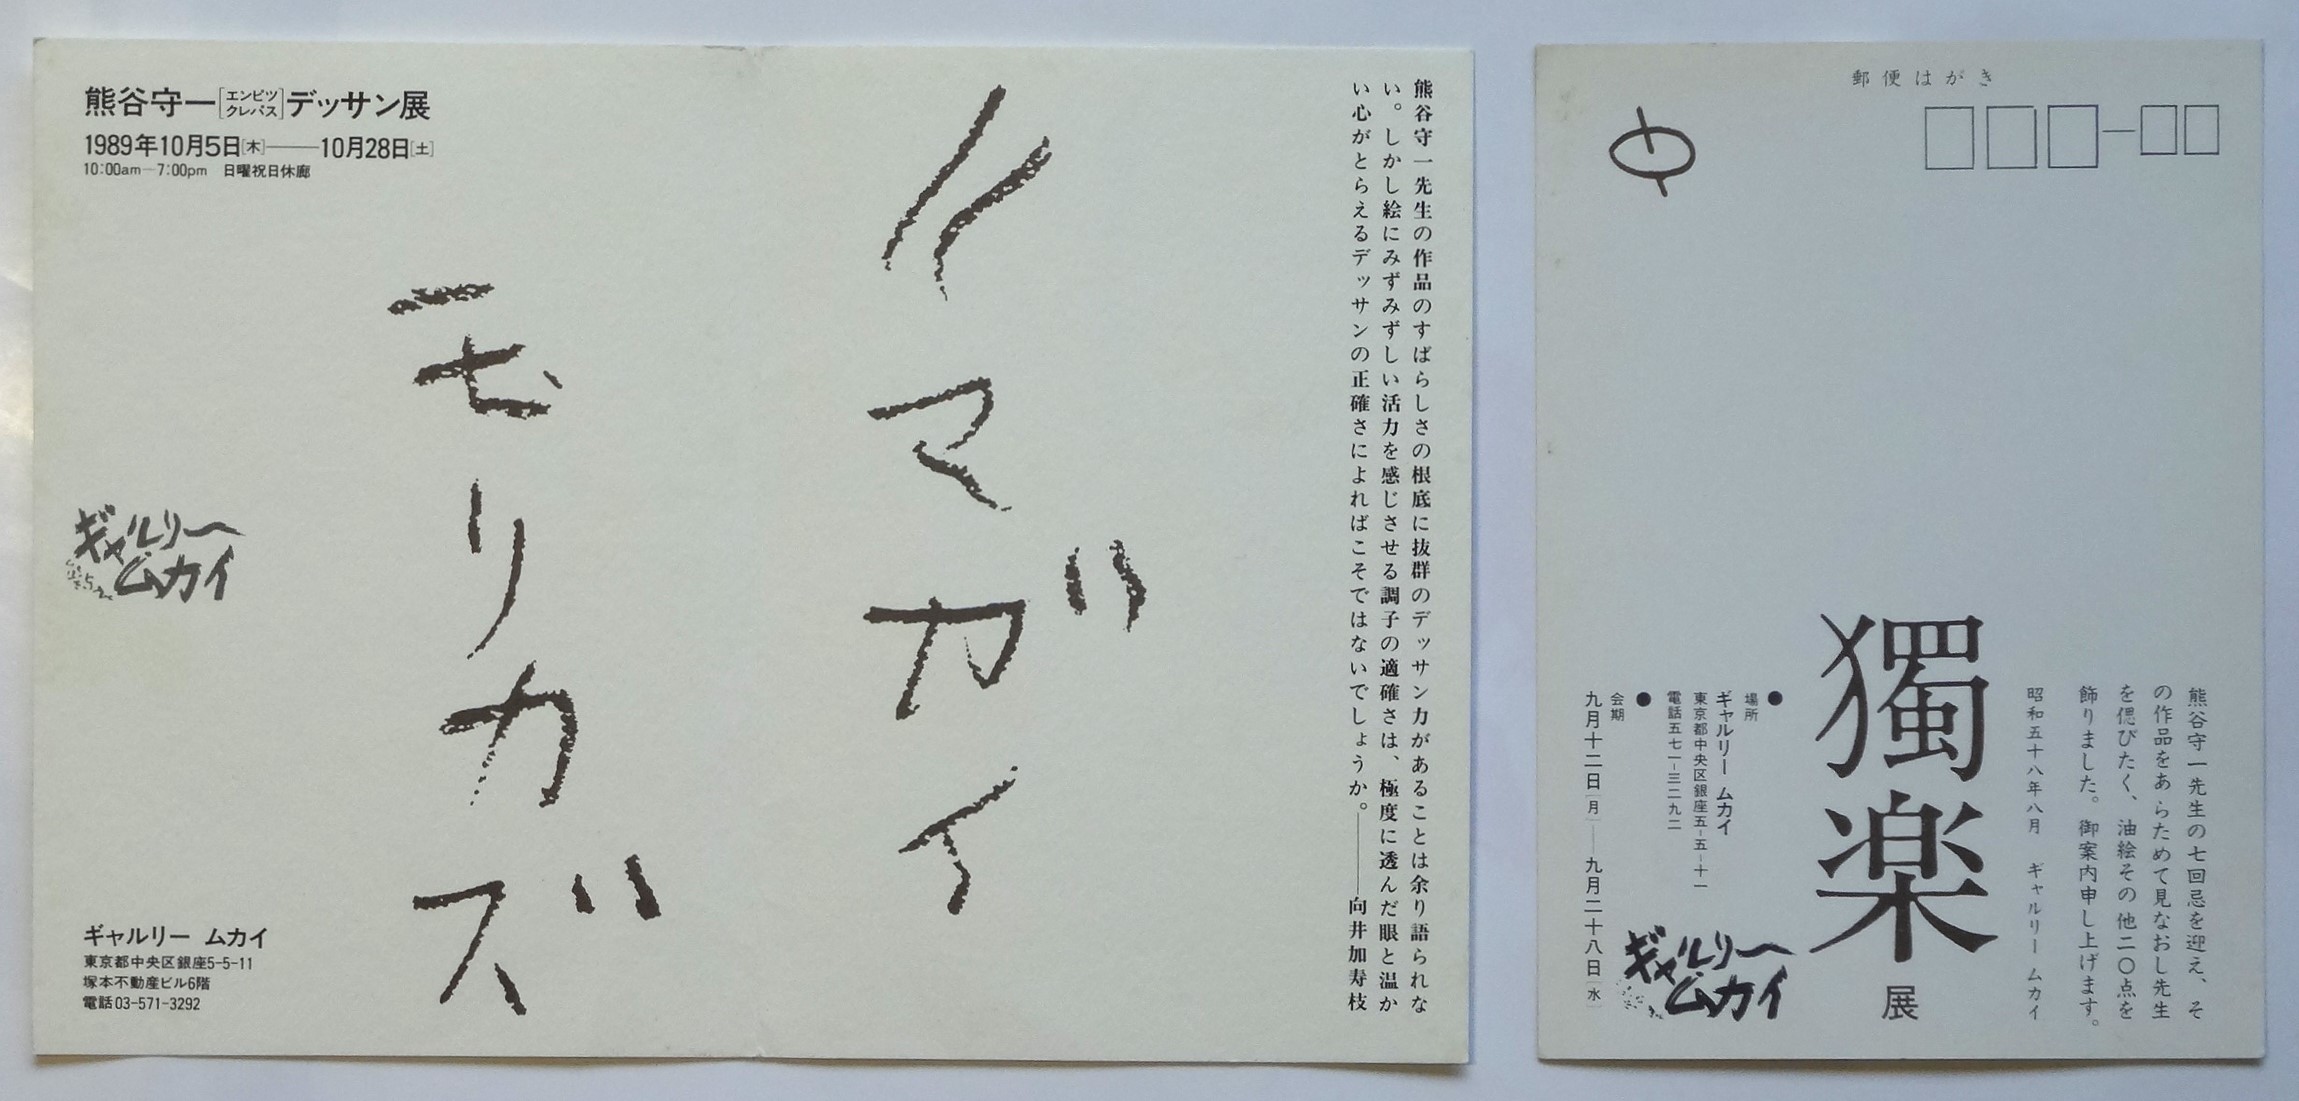 熊谷守一[エンピツ クレパス]デッサン展
1989年10月5日[木]——10月28日[土]
10:00am—7:00pm 日曜祝日休廊
熊谷守一先生の作品のすばらしさの根底に抜群のデッサン力があることは余り語られな
い。しかし絵にみずみずしい活力を感じさせる調子の適確さは、極度に透んだ眼と温か
い心がとらえるデッサンの正確さによればこそではないでしょうか。——向井加寿枝
クマガイ
モリカズ
ギャルリー
ムカイ
ギャルリー ムカイ
東京都中央区銀座5-5-11
塚本不動産ビル6階
電話03-571-3292
郵便はがき
熊谷守一先生の七回忌を迎え、そ
の作品をあらためて見なおし先生
を偲びたく、油絵その他二〇点を
飾りました。御案内申し上げます。
昭和五十八年八月 ギャルリー ムカイ
獨楽展
●場所
ギャルリー ムカイ
東京都中央区銀座五-五-十一
電話五七一-三二九二
●会期
九月十二日[月]——九月二十八日[水]
ギャルリー
ムカイ